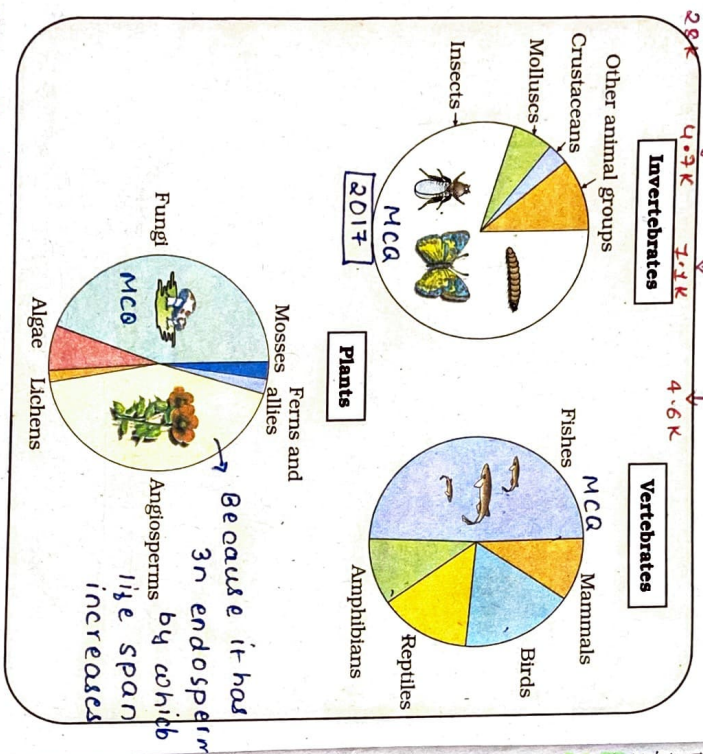 28K 4.7K 7.1K 4.6K
Invertebrates
Other animal groups
Crustaceans
Molluscs
Insects
MCQ
2017
Vertebrates
Fishes
MCQ
Mammals
Birds
Reptiles
Amphibians
Plants
Mosses
Ferns and
allies
Fungi
MCQ
Angiosperms
Algae
Lichens
Because it has
3n endosperm
by which
life span
increases